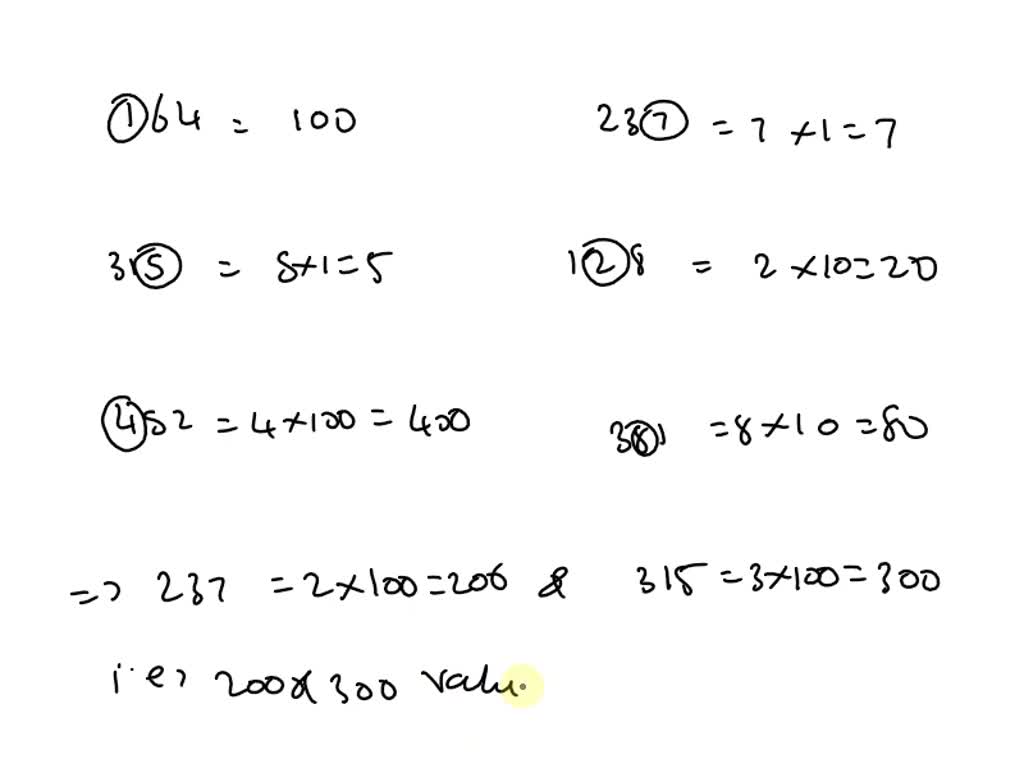 164 = 100 237 = 7 × 1 = 7
315 = 5 × 1 = 5 128 = 2 × 10 = 20
452 = 4 × 100 = 400 381 = 8 × 10 = 80
=> 237 = 2 × 100 = 200 & 315 = 3 × 100 = 300
i.e, 200 & 300 valu.